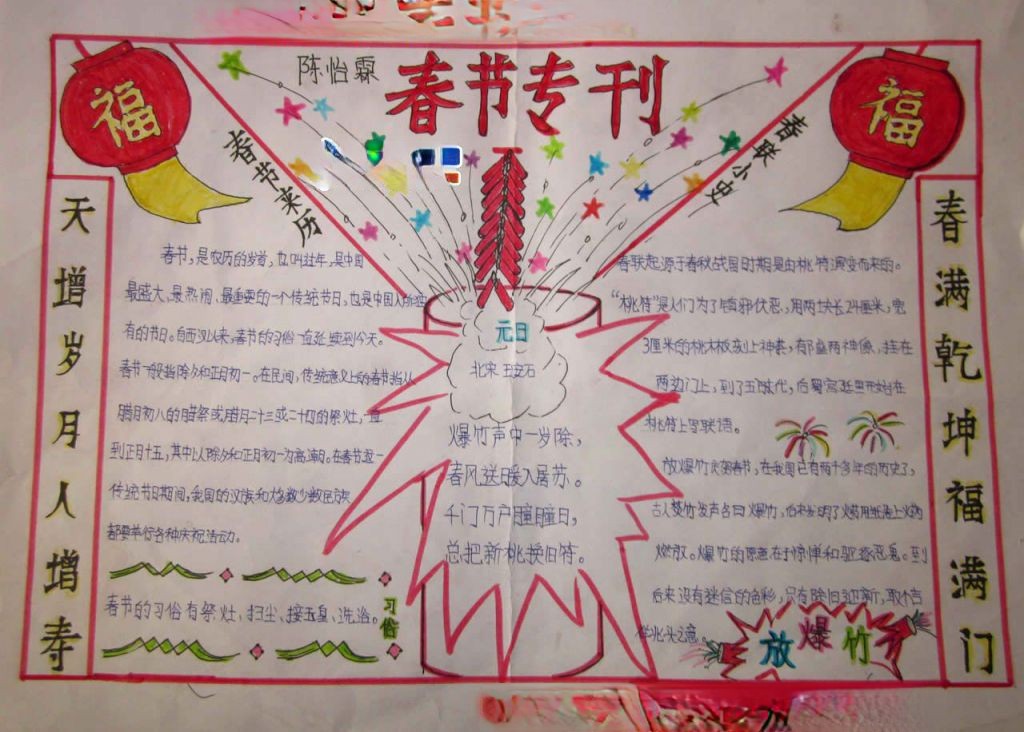 陈怡霖
春节专刊
福
福
春节来历
春联小史
天增岁月人增寿
春满乾坤福满门
春节,是农历的岁首,也叫过年,是中国
最盛大、最热闹、最重要的一个传统节日,也是中国人所独
有的节日。自西汉以来,春节的习俗一直延续到今天。
春节一般指除夕和正月初一。在民间,传统意义上的春节指从
腊月初八的腊祭或腊月二十三或二十四的祭灶,一直
到正月十五,其中以除夕和正月初一为高潮。在春节这一
传统节日期间,我国的汉族和大多数少数民族
都要举行各种庆祝活动。
春节的习俗有祭灶、扫尘、接玉皇、洗浴。
习俗
元日
北宋 王安石
爆竹声中一岁除,
春风送暖入屠苏。
千门万户曈曈日,
总把新桃换旧符。
春联起源于春秋战国时期是由桃符演变而来的。
“桃符”是人们为了镇邪伏恶,用两块长24厘米,宽
3厘米的桃木板刻上神荼,郁垒两神像,挂在
两边门上,到了五代时代,后蜀宫廷里开始在
桃符上写联语。
放爆竹贺春节,在我国已有两千多年的历史了,
古人焚竹发声名曰爆竹,后来发明了火药用纸卷上火药
燃放。爆竹的原意在于惊惮和驱逐恶鬼。到
后来没有迷信的色彩,只有除旧迎新,取吉
祥兆头之意。
放爆竹